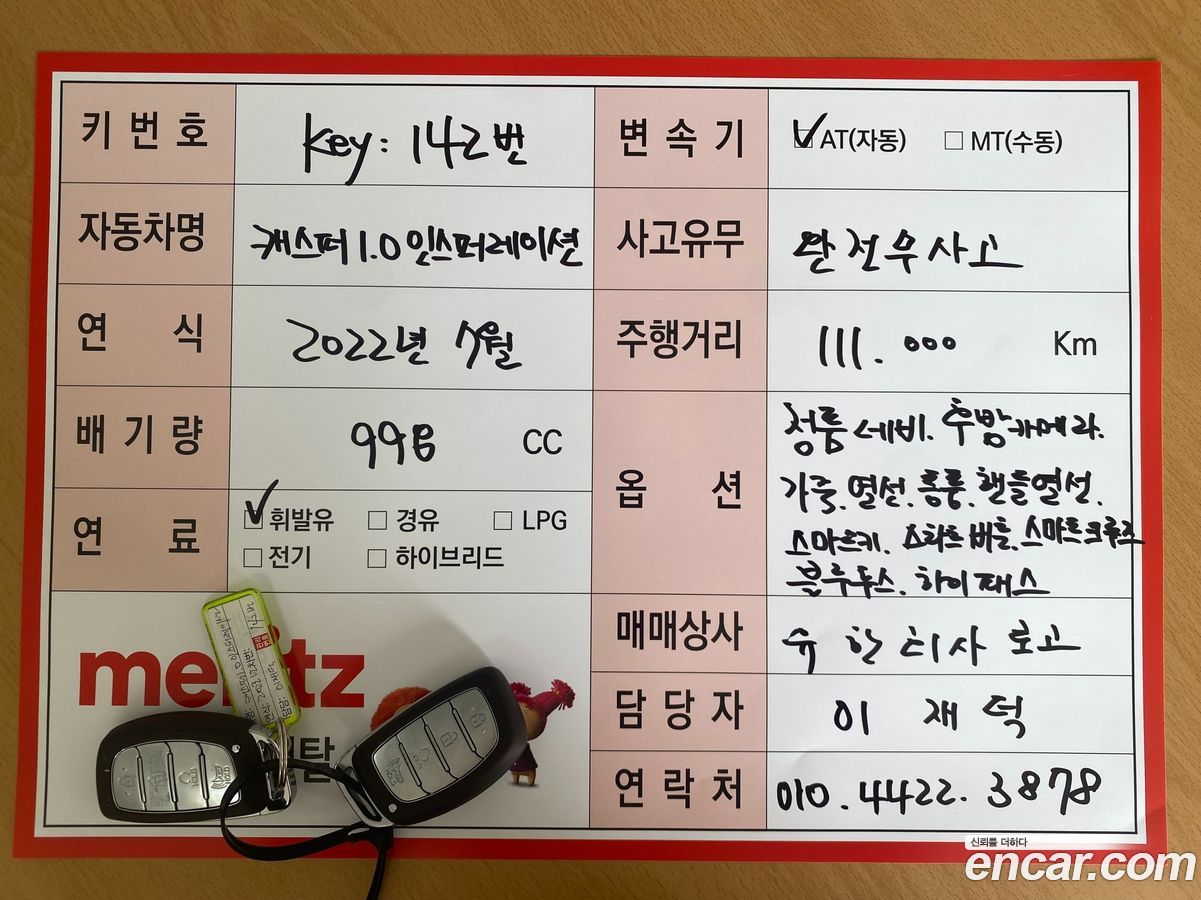 키 번 호
key : 142번
변 속 기
AT(자동) MT(수동)
자동차명
캐스퍼 1.0 인스퍼레이션
사고유무
완전무사고
연 식
2022년 7월
주행거리
111.000 Km
배 기 량
998 CC
옵 션
정품 네비. 후방카메라.
가죽. 열선. 통풍. 핸들열선.
스마트키. 스타트버튼. 스마트크루즈
블루투스. 하이패스
연 료
휘발유 경유 LPG
전기 하이브리드
매매상사
담 당 자
이 재 덕
연 락 처
010.4422.3878
신뢰를 더하다
encar.com